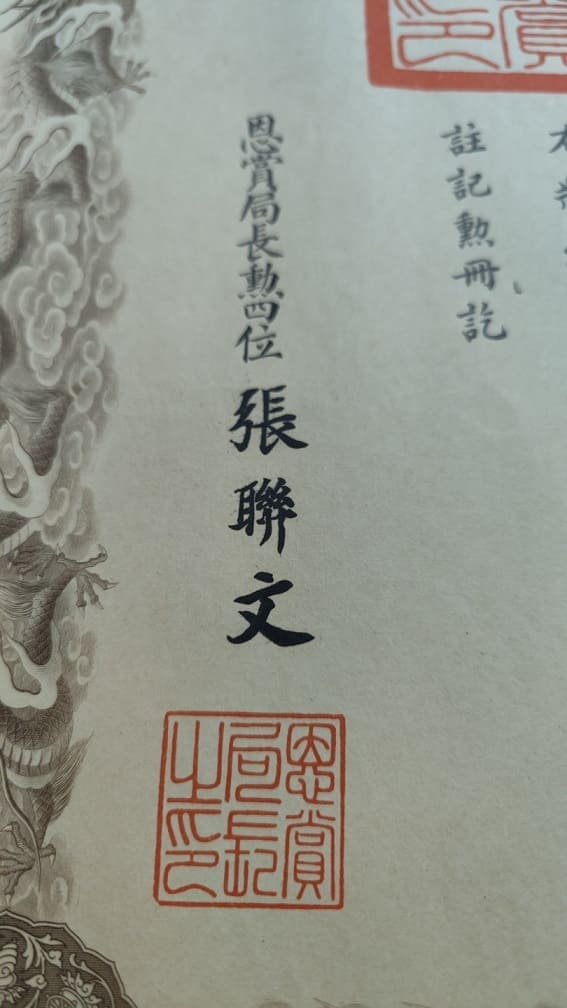 註記勲冊訖
恩賞局長勲四位
張聯文
恩賞
局長
之印